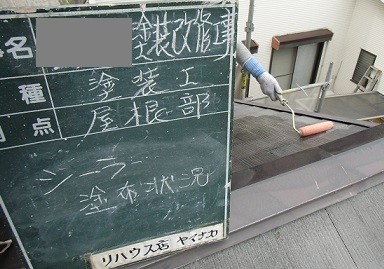 名 塗装改修事
種 塗装工
点 屋根部
シーラー
塗布状況
リハウス店 ヤイナス